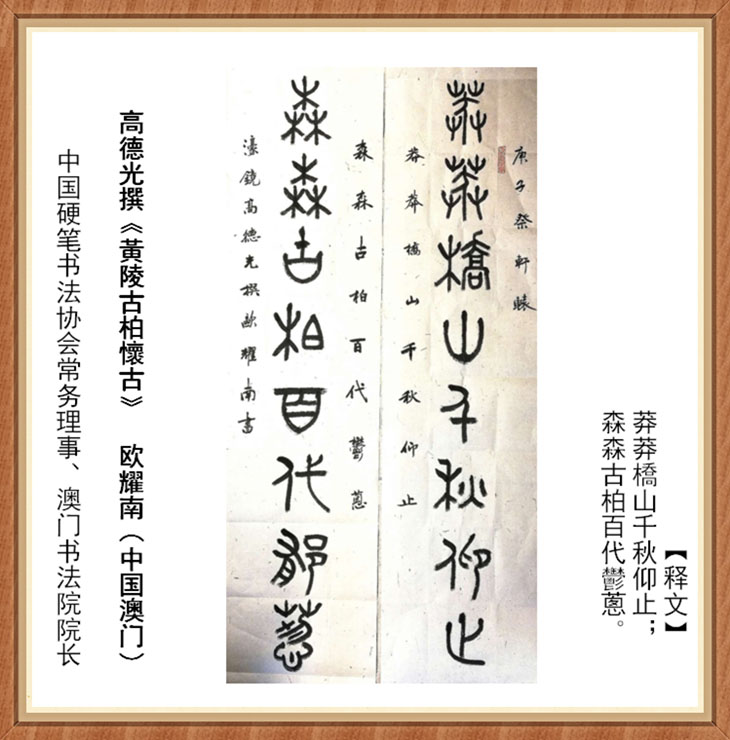 【释文】
莽莽橋山千秋仰止；
森森古柏百代鬱蔥。
庚子祭軒轅
莽莽橋山千秋仰止
莽莽橋山千秋仰止
森森古柏百代鬱蔥
森森古柏百代鬱蔥
濠鏡高德光撰歐耀南書
高德光撰《黃陵古柏懷古》 欧耀南（中国澳门）
中国硬笔书法协会常务理事、澳门书法院院长